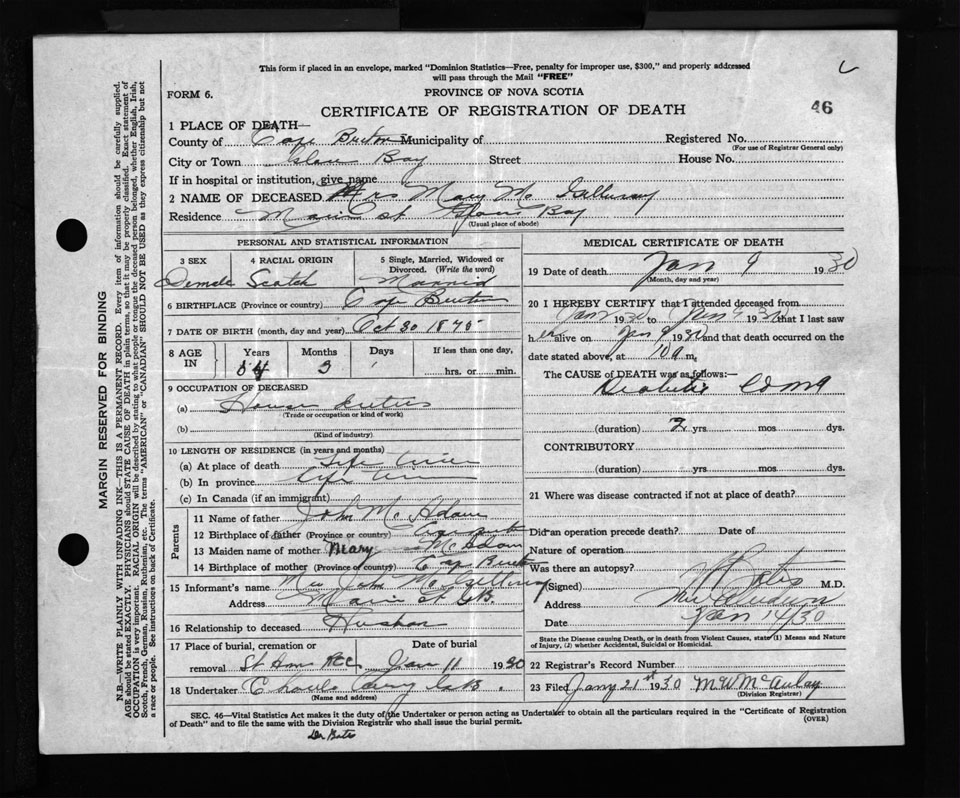 This form if placed in an envelope, marked "Dominion Statistics—Free, penalty for improper use, $300," and properly addressed
will pass through the Mail "FREE"
FORM 6.
PROVINCE OF NOVA SCOTIA
CERTIFICATE OF REGISTRATION OF DEATH
46
1 PLACE OF DEATH—
County of Cape Breton Municipality of Registered No.
(For use of Registrar General only)
City or Town Glace Bay Street House No.
If in hospital or institution, give name
2 NAME OF DECEASED Mrs Mary Mc
Residence Main St Glace Bay
(Usual place of abode)
PERSONAL AND STATISTICAL INFORMATION
3 SEX 4 RACIAL ORIGIN 5 Single, Married, Widowed or
Divorced. (Write the word)
Female Scotch Married
6 BIRTHPLACE (Province or country) Cape Breton
7 DATE OF BIRTH (month, day and year) Oct 30 1875
8 AGE IN Years Months Days If less than one day,
54 3 hrs. or min.
9 OCCUPATION OF DECEASED
(a) House Duties
(Trade or occupation or kind of work)
(b)
(Kind of industry)
10 LENGTH OF RESIDENCE (in years and months)
(a) At place of death Life time
(b) In province Life time
(c) In Canada (if an immigrant)
Parents
11 Name of father John McAdam
12 Birthplace of father (Province or country)
13 Maiden name of mother Mary McAdam
14 Birthplace of mother (Province or country) Cape Breton
15 Informant's name John Mc
Address Main St G.B.
16 Relationship to deceased Husban
17 Place of burial, cremation or Date of burial
removal St Ann Jan 11 1930
18 Undertaker G.B.
(Name and address)
MEDICAL CERTIFICATE OF DEATH
19 Date of death Jan 9 1930
(Month, day and year)
20 I HEREBY CERTIFY that I attended deceased from
Jan 1930 to Jan 9 1930 that I last saw
h er alive on Jan 9 1930 and that death occurred on the
date stated above, at 10 a m.
The CAUSE of DEATH was as follows:—
Diabetic Coma
(duration) 2 yrs. mos dys.
CONTRIBUTORY
(duration) yrs. mos. dys.
21 Where was disease contracted if not at place of death?
Did an operation precede death? Date of
Nature of operation
Was there an autopsy?
(Signed) Bates M.D.
Address
Date Jan 14/30
State the Disease causing Death, or in death from Violent Causes, state (1) Means and Nature
of Injury, (2) whether Accidental, Suicidal or Homicidal.
22 Registrar's Record Number
23 Filed Jany 21st 1930 M W McAulay
(Division Registrar)
SEC. 46—Vital Statistics Act makes it the duty of the Undertaker or person acting as Undertaker to obtain all the particulars required in the "Certificate of Registration
of Death" and to file the same with the Division Registrar who shall issue the burial permit.
(OVER)
Dr. Bates
MARGIN RESERVED FOR BINDING
N.B.—WRITE PLAINLY WITH UNFADING INK—THIS IS A PERMANENT RECORD. Every item of information should be carefully supplied.
AGE should be stated EXACTLY. PHYSICIANS should STATE CAUSE OF DEATH in plain terms, so that it may be properly classified. Exact statement of
OCCUPATION is very important. RACIAL ORIGIN will be described by stating to what people or tongue the deceased person belonged, whether English, Irish,
Scotch, French, German, Russian, Ruthenian, etc. The terms "AMERICAN" or "CANADIAN" SHOULD NOT BE USED as they express citizenship but not
a race or people. See instructions on back of Certificate.